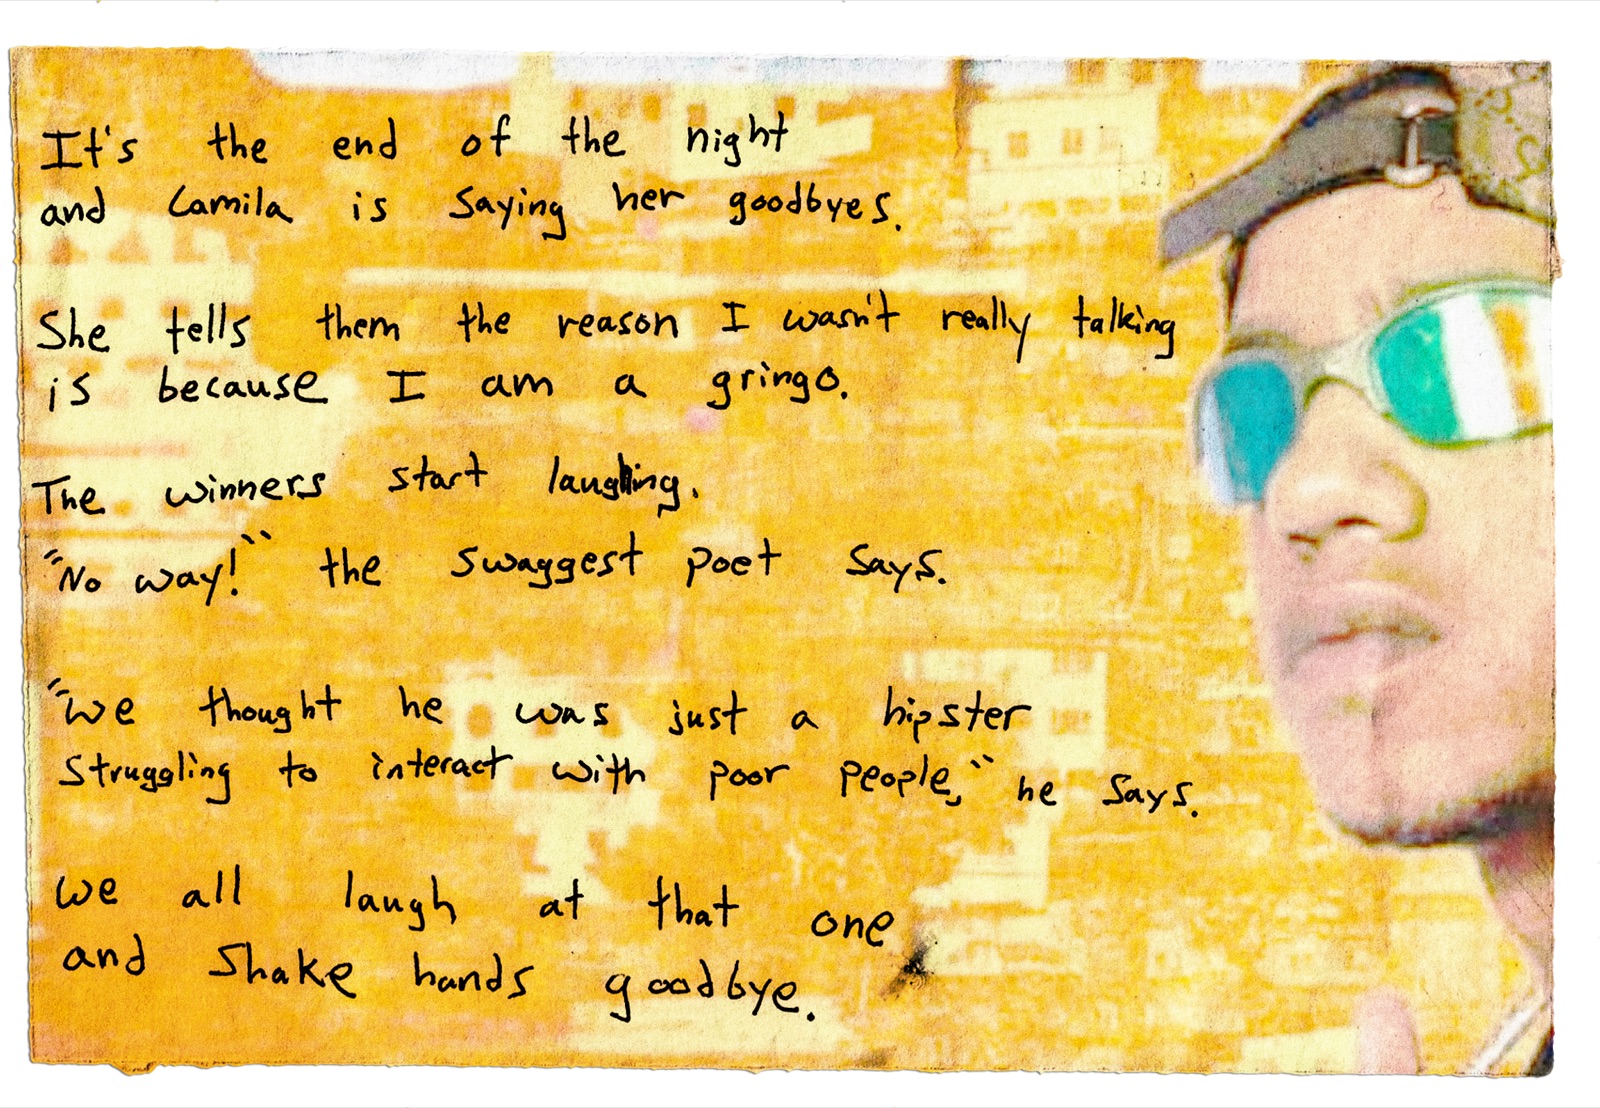 It's the end of the night
and Camila is saying her goodbyes.
She tells them the reason I wasn't really talking
is because I am a gringo.
The winners start laughing.
"No way!" the swaggest poet says.
"We thought he was just a hipster
struggling to interact with poor people," he says.
We all laugh at that one
and shake hands goodbye.